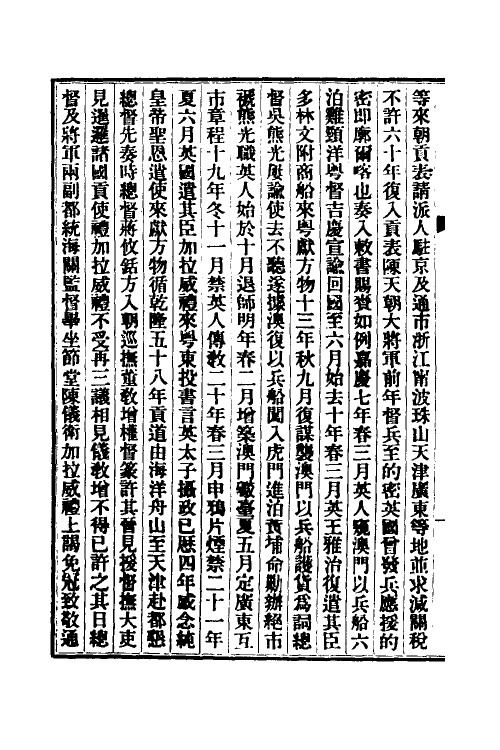 等來朝貢表請派人駐京及通市浙江甯波珠山天津廣東等地並求減關稅
不許六十年復入貢表陳天朝大將軍前年督兵至的密英國曾發兵應援的
密卽廓爾喀也奏入敕書賜賚如例嘉慶七年春三月英人窺澳門以兵船六
泊雞頸洋粵督吉慶宣諭回國至六月始去十年春三月英王雅治復遣其臣
多林文附商船來粵獻方物十三年秋九月復謀襲澳門以兵船護貨爲詞總
督吳熊光屢諭使去不聽遂據澳復以兵船闖入虎門進泊黃埔命勦辦絕市
褫熊光職英人始於十月退師明年春二月增築澳門礮臺夏五月定廣東互
市章程十九年冬十一月禁英人傳敎二十年春三月申鴉片煙禁二十一年
夏六月英國遣其臣加拉威禮來粵東投書言英太子攝政已歷四年感念純
皇帝聖恩遣使來獻方物循乾隆五十八年貢道由海洋舟山至天津赴都懇
總督先奏時總督蔣攸銛方入朝巡撫董敎增權督篆許其晉見援督撫大吏
見暹邏諸國貢使禮加拉威禮不受再三議相見儀敎增不得已許之其日總
督及將軍兩副都統海關監督畢坐節堂陳儀衛加拉威禮上謁免冠致敬通